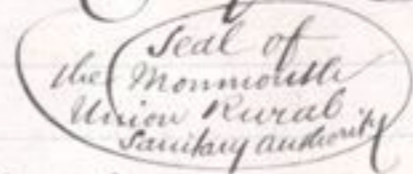 Seal of
the Monmouth
Union Rural
Sanitary Authority